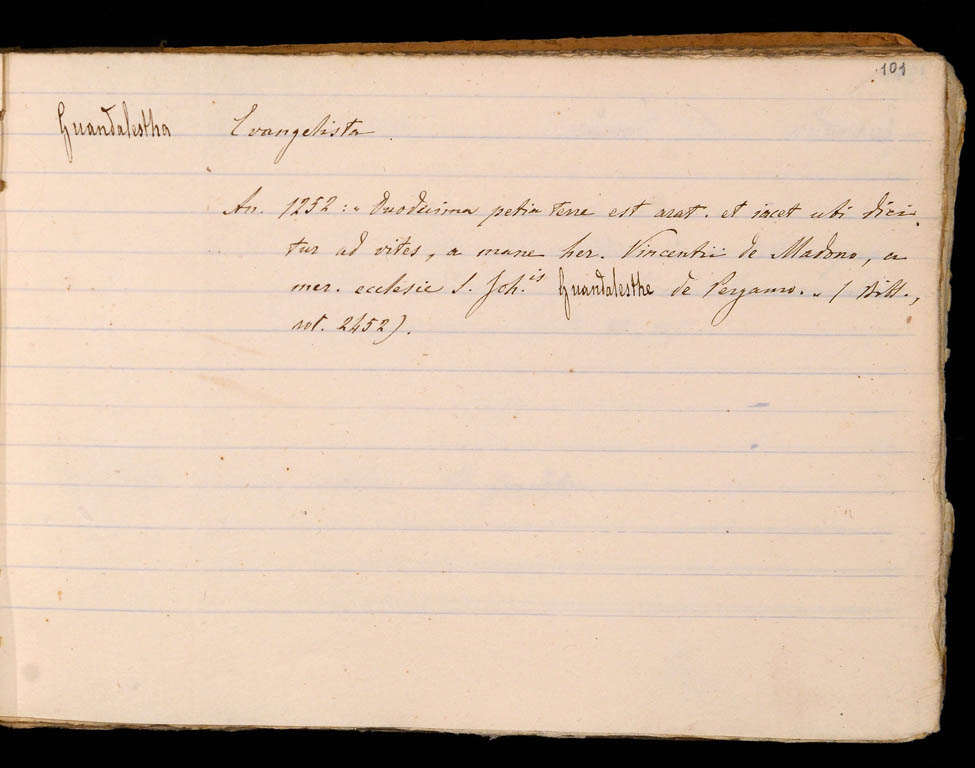 101
Guandalestha Evangelista.
An. 1252: „ Duodecima petia terre est arat. et iacet ubi dici-
tur ad vites, a mane her. Vincentii de Madono, a
mer. ecclesie S. Joh.is Guandalesthe de Pergamo. „ ( Bibl.,
rot. 2452).